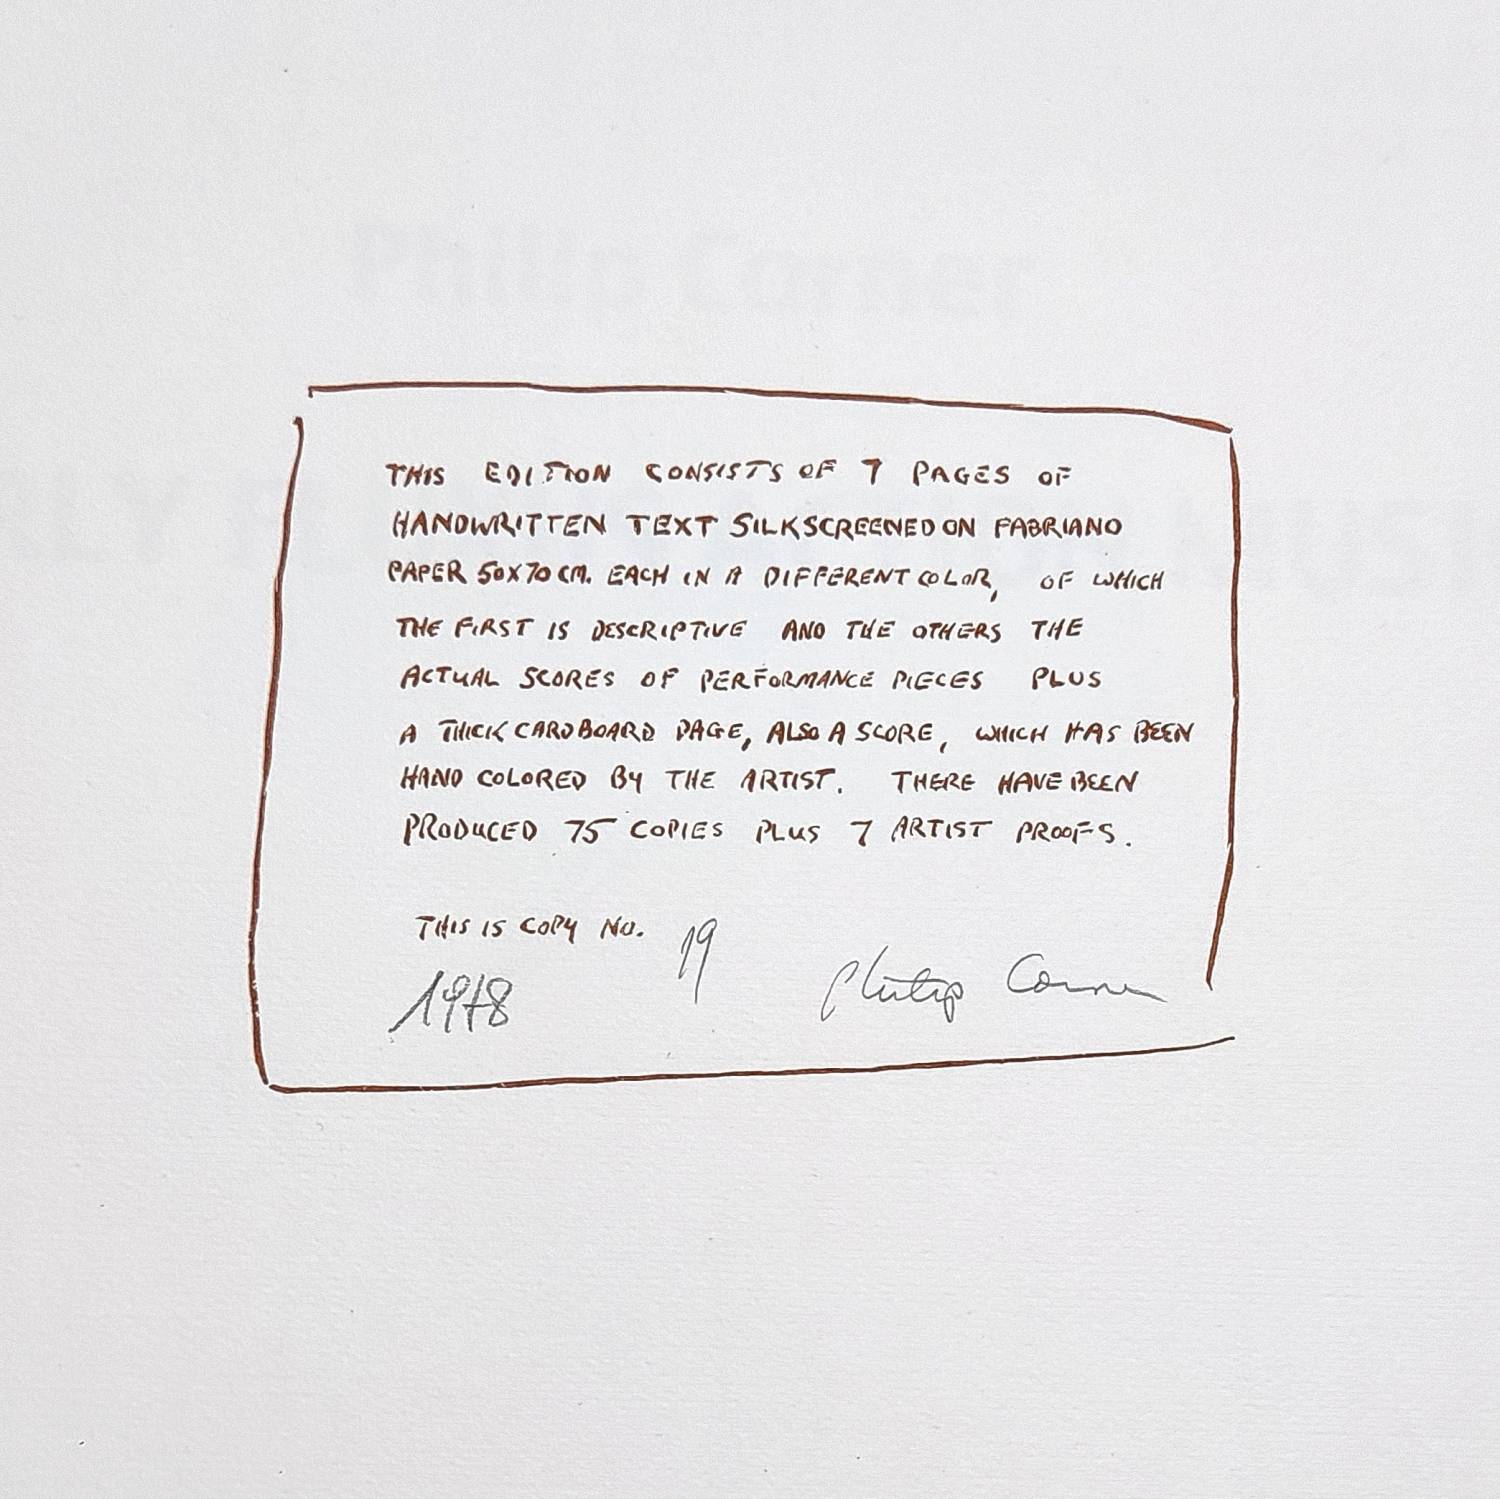 Philip Corner
THIS EDITION CONSISTS OF 7 PAGES OF
HANDWRITTEN TEXT SILKSCREENED ON FABRIANO
PAPER 50X70 CM. EACH IN A DIFFERENT COLOR, OF WHICH
THE FIRST IS DESCRIPTIVE AND THE OTHERS THE
ACTUAL SCORES OF PERFORMANCE PIECES PLUS
A THICK CARDBOARD PAGE, ALSO A SCORE, WHICH HAS BEEN
HAND COLORED BY THE ARTIST. THERE HAVE BEEN
PRODUCED 75 COPIES PLUS 7 ARTIST PROOFS.
THIS IS COPY NO. 19
1978 Philip Corner